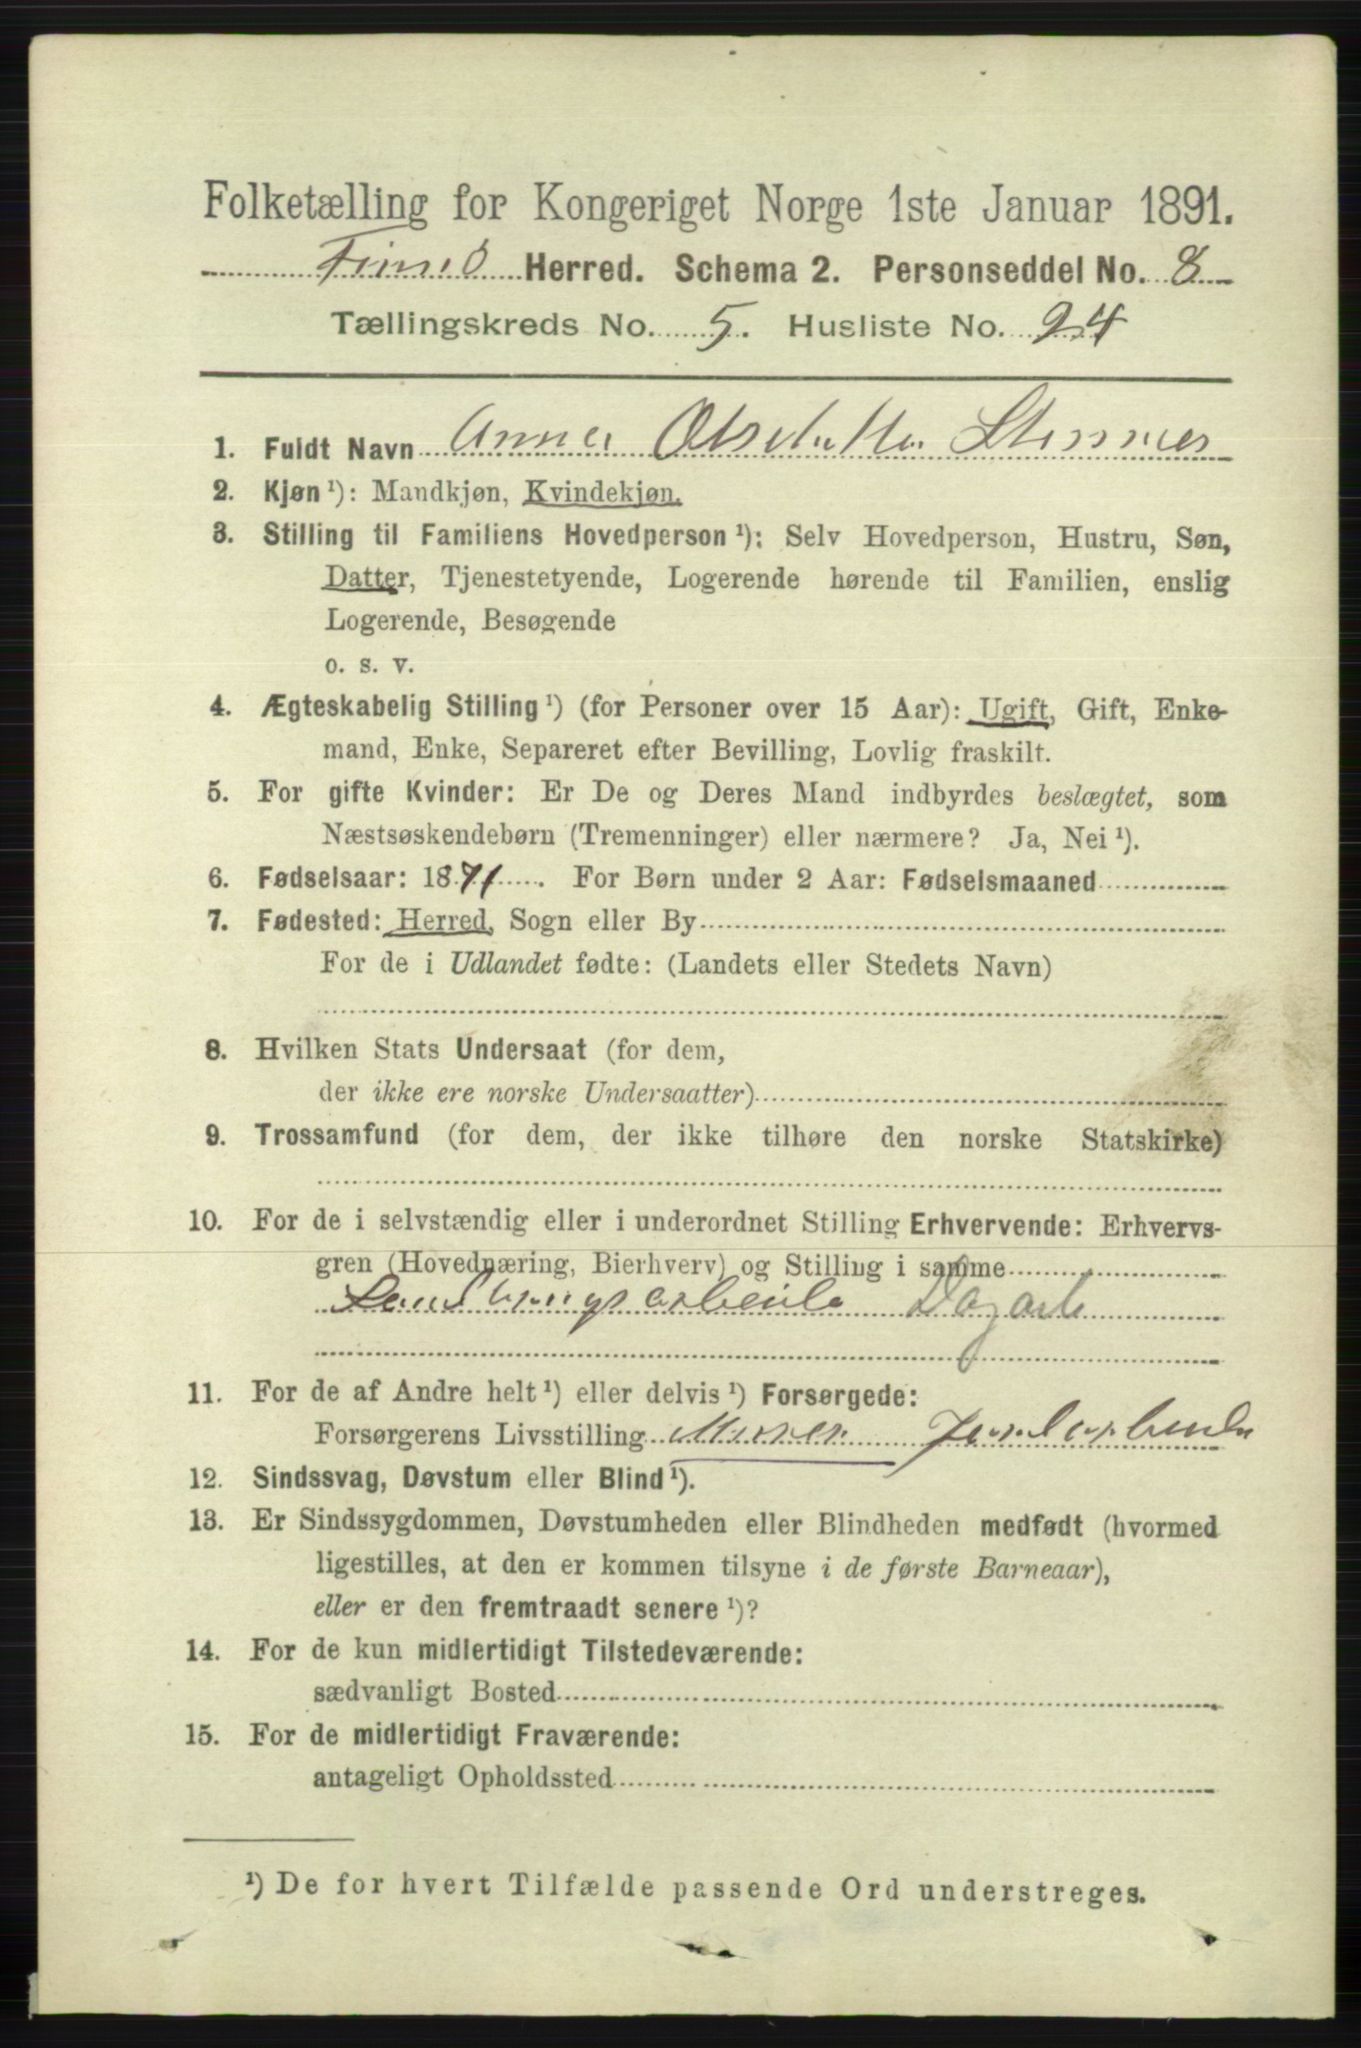 Folketælling for Kongeriget Norge 1ste Januar 1891.
Finnø Herred. Schema 2. Personseddel No. 8
Tællingskreds No. 5. Husliste No. 24
1. Fuldt Navn Anna Olsdatter
2. Kjøn ¹): Mandkjøn, Kvindekjøn.
3. Stilling til Familiens Hovedperson ¹): Selv Hovedperson, Hustru, Søn,
Datter, Tjenestetyende, Logerende hørende til Familien, enslig
Logerende, Besøgende
o. s. v.
4. Ægteskabelig Stilling ¹) (for Personer over 15 Aar): Ugift, Gift, Enke-
mand, Enke, Separeret efter Bevilling, Lovlig fraskilt.
5. For gifte Kvinder: Er De og Deres Mand indbyrdes beslægtet, som
Næstsøskendebørn (Tremenninger) eller nærmere? Ja, Nei ¹).
6. Fødselsaar: 1871. For Børn under 2 Aar: Fødselsmaaned
7. Fødested: Herred, Sogn eller By
For de i Udlandet fødte: (Landets eller Stedets Navn)
8. Hvilken Stats Undersaat (for dem,
der ikke ere norske Undersaatter)
9. Trossamfund (for dem, der ikke tilhøre den norske Statskirke)
10. For de i selvstændig eller i underordnet Stilling Erhvervende: Erhvervs-
gren (Hovednæring, Bierhverv) og Stilling i samme
11. For de af Andre helt ¹) eller delvis ¹) Forsørgede:
Forsørgerens Livsstilling
12. Sindssvag, Døvstum eller Blind ¹).
13. Er Sindssygdommen, Døvstumheden eller Blindheden medfødt (hvormed
ligestilles, at den er kommen tilsyne i de første Barneaar),
eller er den fremtraadt senere ¹)?
14. For de kun midlertidigt Tilstedeværende:
sædvanligt Bosted
15. For de midlertidigt Fraværende:
antageligt Opholdssted
¹) De for hvert Tilfælde passende Ord understreges.